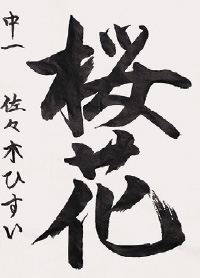 桜花
中一 佐々木ひすい